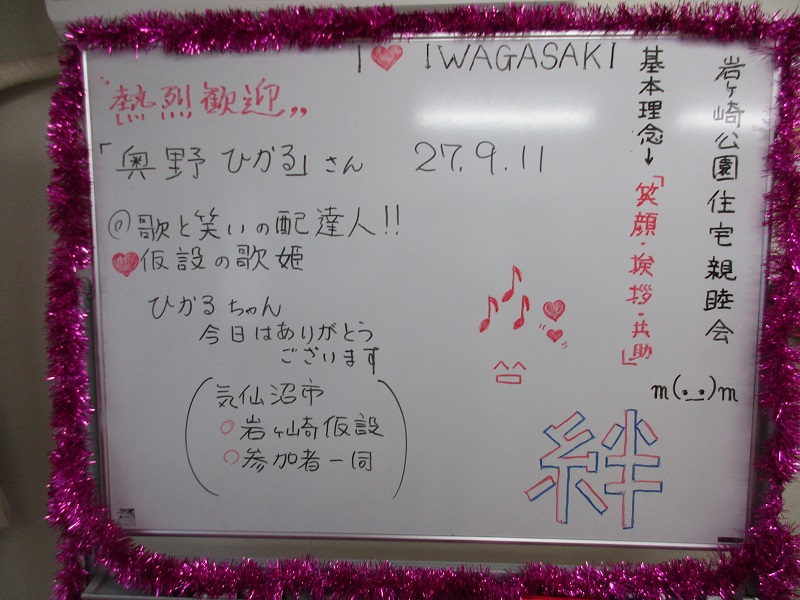 I ♥ IWAGASAKI
岩ヶ崎公園住宅親睦会
基本理念→「笑顔・挨拶・共助」
熱烈歓迎〃
「奥野ひかる」さん 27.9.11
◎歌と笑いの配達人!!
♥仮設の歌姫
ひかるちゃん
今日はありがとう
ございます
(気仙沼市
○岩ヶ崎仮設
○参加者一同)
m(._.)m
絆